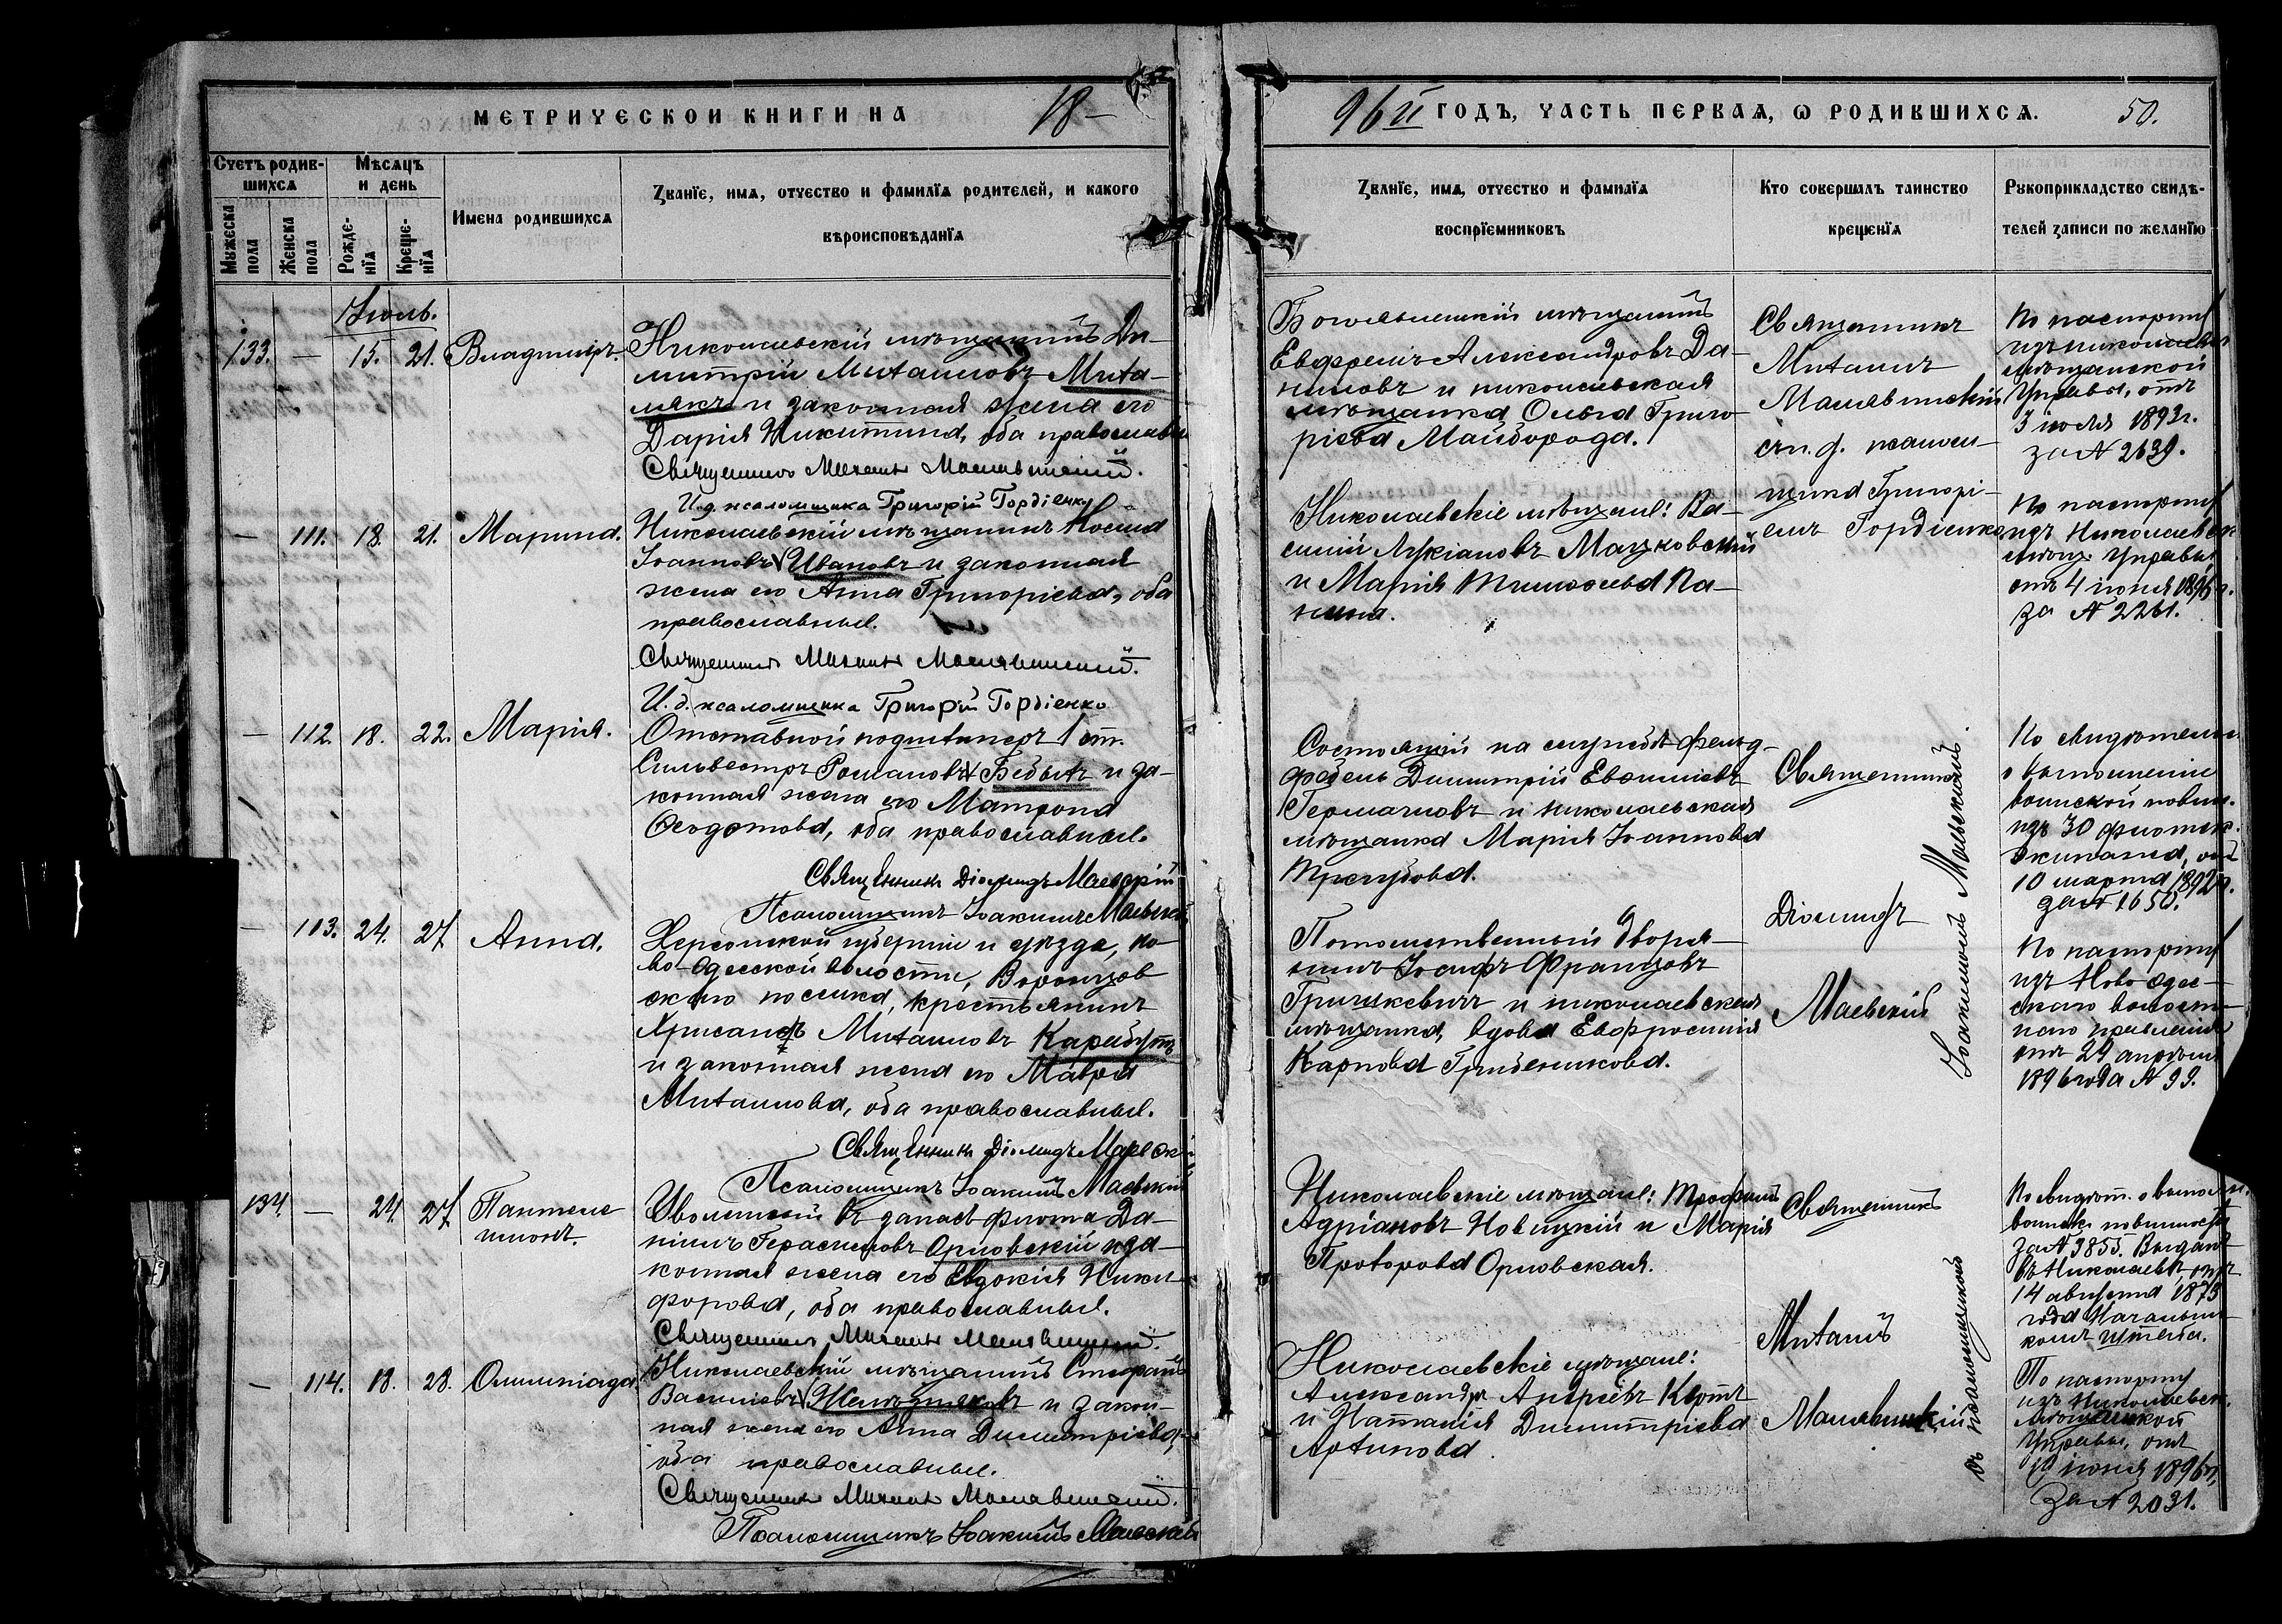 МЕТРИЧЕСКОЙ КНИГИ НА 18—
96й ГОДЪ, ЧАСТЬ ПЕРВАѦ, Ѡ РОДИВШИХСѦ. 50.
Счетъ родив-
шихсѧ
Мѣсѧцъ
и день
Мужеска
пола
Женска
пола
Рожде-
нїѧ
Креще-
нїѧ
Имена родившихсѧ
Званїе, имѧ, отчество и фамилїѧ родителей, и какого
вѣроисповѣданїѧ
Званїе, имѧ, отчество и фамилїѧ
воспрїемниковъ
Кто совершалъ таинство
крещенїѧ
Рукоприкладство свидѣ-
телей записи по желанїю
Іюль.
133. — 15. 21. Владиміръ.
Николаевскій мѣщанинъ Ди-
митрій Михаиловъ Миха-
лякъ и законная жена его
Дарія Никитина, оба православн
Священникъ Михаилъ
И.д. псаломщика Григорій Гордіенко
Евфремъ Александровъ Да-
ниловъ и николаевская
мѣщанка Ольга Григо-
ріева Майборода.
Священникъ
Михаилъ
и.д. псаломщика Григорі-
емъ Гордіенко
По паспорту
изъ николаевск
мѣщанской
Управы, отъ
3 іюля 1893г.
за № 2639.
— 111. 18. 21. Марина.
Николаевскій мѣщанинъ Іосифъ
Іоанновъ Ивановъ и законная
жена его Анна Григоріева, оба
православные.
Священникъ Михаилъ
И.д. псаломщика Григорій Гордіенко
Николаевскіе мѣщане: Ва-
силій Лукіановъ Мацковскій
и Марія Тимофеева Па-
нина.
По паспорту
изъ Николаевск
мѣщ. Управы
отъ 4 іюня 1896г.
за № 2261.
— 112. 18. 22. Марія.
Отставной подшкиперъ 1 ст.
Сильвестръ Романовъ Бебыхъ и за-
конная жена его Матрона
Ѳеодотова, оба православные.
Священникъ Діомидъ Маевскій
Псаломщикъ Іоакимъ Маевскій
Состоящій на службѣ фельд-
фебель Димитрій Евѳиміевъ
и николаевская
мѣщанка Марія Іоаннова
Трегубова.
Священникъ
Діомидъ
Маевскій
Іоакимомъ Маевскимъ.
По свидѣтельс
о выполненіи
воинской повин.
изъ 30 флотск.
экипажа, отъ
10 марта 1892г.
за № 1650.
— 113. 24. 27. Анна.
Херсонской губерніи и уѣзда, но-
во-Одесской волости, Воронцов
скаго поселка, крестьянинъ
Хрисанфъ Михаиловъ Карабутъ
и законная жена его Мавра
Михаилова, оба православные.
Священникъ Діомидъ Маевск
Псаломщикъ Іоакимъ Маевскій
Потомственный дворя-
нинъ Іосифъ Францовъ
Гришкевичъ и николаевская
мѣщанка, вдова Евфросинія
Карпова Гребенникова.
По паспорту
изъ Ново Одес-
скаго волост-
наго правленія
отъ 29 апрѣля
1896 года № 99.
134. — 24. 27. Пантеле
имонъ.
Уволенный въ запасъ флота Да-
ніилъ Герасимовъ Орловскій и за-
конная жена его Евдокія Ники-
форова, оба православные.
Священникъ Михаилъ
Николаевскіе мѣщане: Трофимъ
Адріановъ Новицкій и Марія
Прохорова Орловская.
Священникъ
Михаилъ
съ псаломщикомъ
По свидѣт. о выполн.
воинск. повинности
за № 3855. Выдан.
въ Николаевѣ, отъ
14 августа 1875
года Начальни-
комъ Штаба.
— 114. 18. 28. Олимпіада
Николаевскій мѣщанинъ Стефанъ
Василіевъ и закон-
ная жена его Анна Димитріева,
оба православные.
Священникъ Михаилъ
Псаломщикъ Іоакимъ Маевскій
Николаевскіе мѣщане:
Александръ Андреевъ
и Наталія Димитріева
Архипова.
По паспорту
изъ Николаевск.
мѣщанской
Управы, отъ
10 іюня 1896г.,
за № 2031.